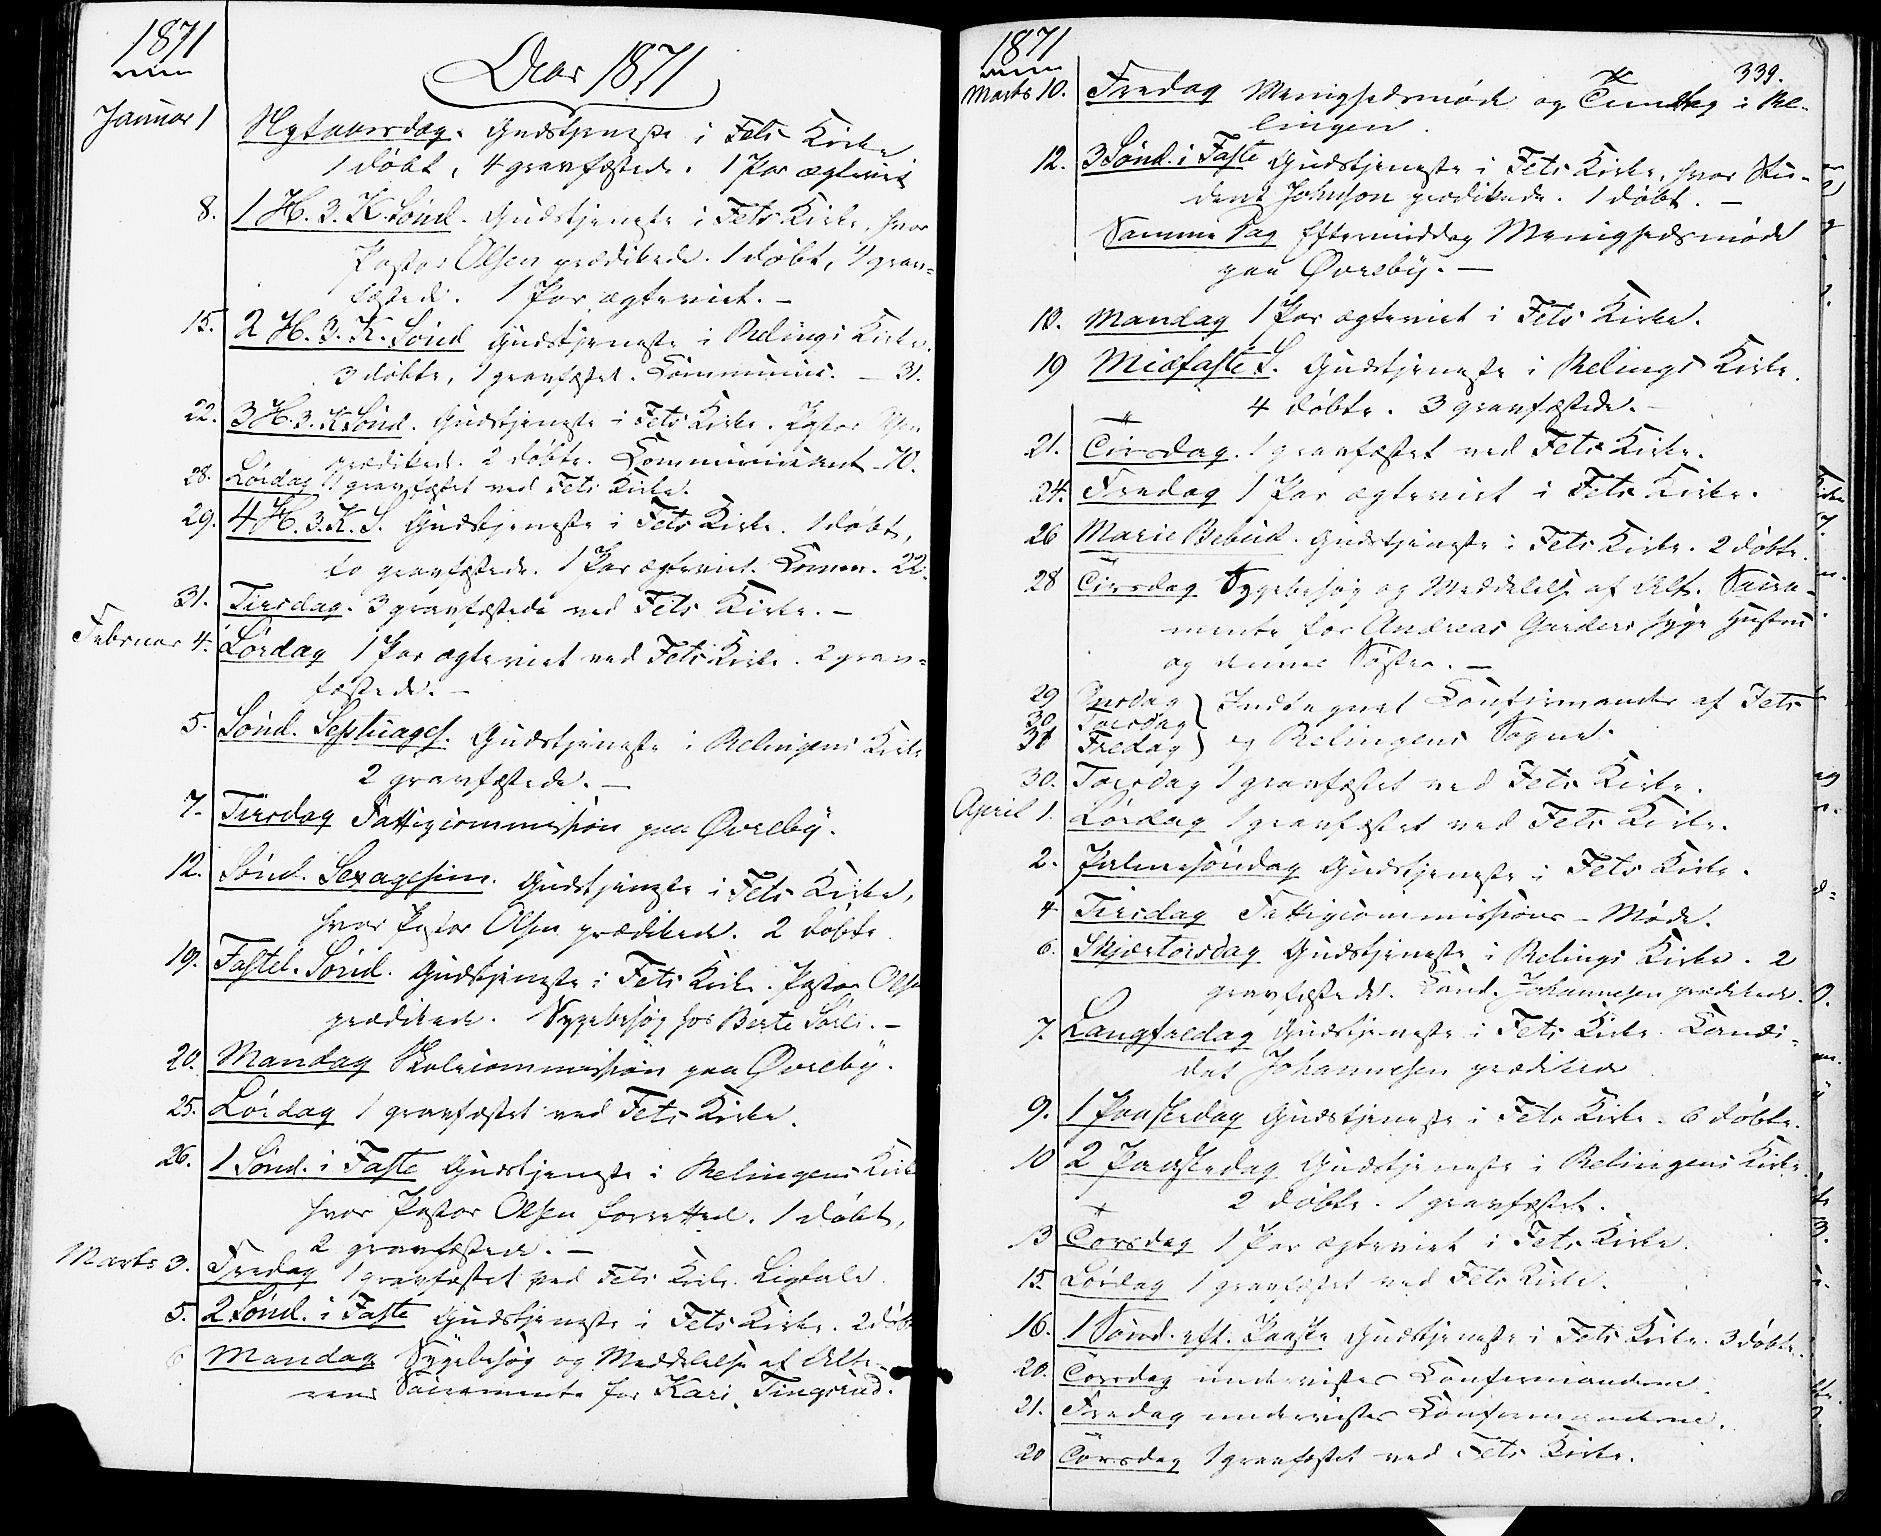 1871
Aar 1871
Januar 1
Nytaarsdag. Gudstjeneste i Fets Kirke
1 døbt, 4 gravfæstede. 1 Par ægteviet
8. 1 H. 3. K. Sønd. Gudstjeneste i Fets Kirke, hvor
Pastor Olsen prædikede. 1 døbt, 1 grav-
fæstede. 1 Par ægteviet. —
15. 2 H. 3. K. Sønd Gudstjeneste i Relings Kirke.
3 døbte, 1 gravfæstet. Communic. — 31.
22. 3 H. 3. K. Sønd. Gudstjeneste i Fets Kirke. Pastor Olsen
prædikede. 2 døbte. Communicant 70.
28. Lørdag 1 gravfæstet ved Fets Kirke.
29. 4 H. 3. K. S. Gudstjeneste i Fets Kirke. 1 døbt,
to gravfæstede. 1 Par ægteviet. Comm. 22.
31. Tirsdag. 3 gravfæstede ved Fets Kirke. —
Februar 4. Lørdag 1 Par ægteviet ved Fets Kirke. 2 grav-
fæstede. —
5. Sønd. Septuages. Gudstjeneste i Relingens Kirke
2 gravfæstede. —
7. Tirsdag Fattigcommission paa Øvreby.
12. Sønd. Sexagesim. Gudstjeneste i Fets Kirke,
hvor Pastor Olsen prædikede. 2 døbte
19. Fastel. Sønd. Gudstjeneste i Fets Kirke. Pastor Olsen
prædikede. Sygebesøg hos Berte . —
20. Mandag Skolecommission paa Øvreby.
25. Lørdag 1 gravfæstet ved Fets Kirke.
26. 1 Sønd. i Faste Gudstjeneste i Relingens Kirke
hvor Pastor Olsen forrettede. 1 døbt,
2 gravfæstede. —
Marts 3. Fredag 1 gravfæstet ved Fets Kirke. Ligtale.
5. 2 Sønd. i Faste Gudstjeneste i Fets Kirke. 2 døbt
6 Mandag Sygebesøg og Meddelelse af Alte-
rens Sacramente for Kari Tingsrud.
1871
339.
Marts 10. Fredag Menighedsmøde og i Re-
lingen.
12. 3 Sønd. i Faste Gudstjeneste i Fets Kirke, hvor Stu-
dent Johnson prædikede. 1 døbt. —
Samme Dag Eftermiddag Menighedsmøde
paa Øvreby. —
Mandag 1 Par ægteviet i Fets Kirke.
19 Midfaste S. Gudstjeneste i Relings Kirke.
4 døbte. 3 gravfæstede. —
21. Tirsdag. 1 gravfæstet ved Fets Kirke.
24. Fredag 1 Par ægteviet i Fets Kirke.
26 Marie Bebud. Gudstjeneste i Fets Kirke. 2 døbte.
28 Tirsdag Sygebesøg og Meddelelse af Alt. Sacra-
mente for Andreas Garders syge Hustru
og dennes Søster. —
29 Onsdag } Indtegnet Confirmander af Fets
30 Torsdag
31 Fredag } og Relingens Sogne.
30. Torsdag 1 gravfæstet ved Fets Kirke.
April 1. Lørdag 1 gravfæstet ved Fets Kirke.
2. Palmesøndag Gudstjeneste i Fets Kirke.
4 Tirsdag Fattigcommissions-Møde.
6. Skjærtorsdag Gudstjeneste i Relings Kirke. 2
gravfæstede. Cand. Johannesen prædikede.
7. Langfredag Gudstjeneste i Fets Kirke. Candi-
dat Johannesen prædikede
9. 1 Paaskedag Gudstjeneste i Fets Kirke. 6 døbte.
10 2 Paaskedag Gudstjeneste i Relingens Kirke.
2 døbte. 1 gravfæstet.
13 Torsdag 1 Par ægteviet i Fets Kirke.
15. Lørdag 1 gravfæstet ved Fets Kirke.
16. 1 Sønd. eft. Paaske Gudstjeneste i Fets Kirke. 3 døbte.
20. Torsdag undervistes Confirmanderne.
21. Fredag undervistes Confirmanderne.
20 Torsdag 1 gravfæstet ved Fets Kirke.